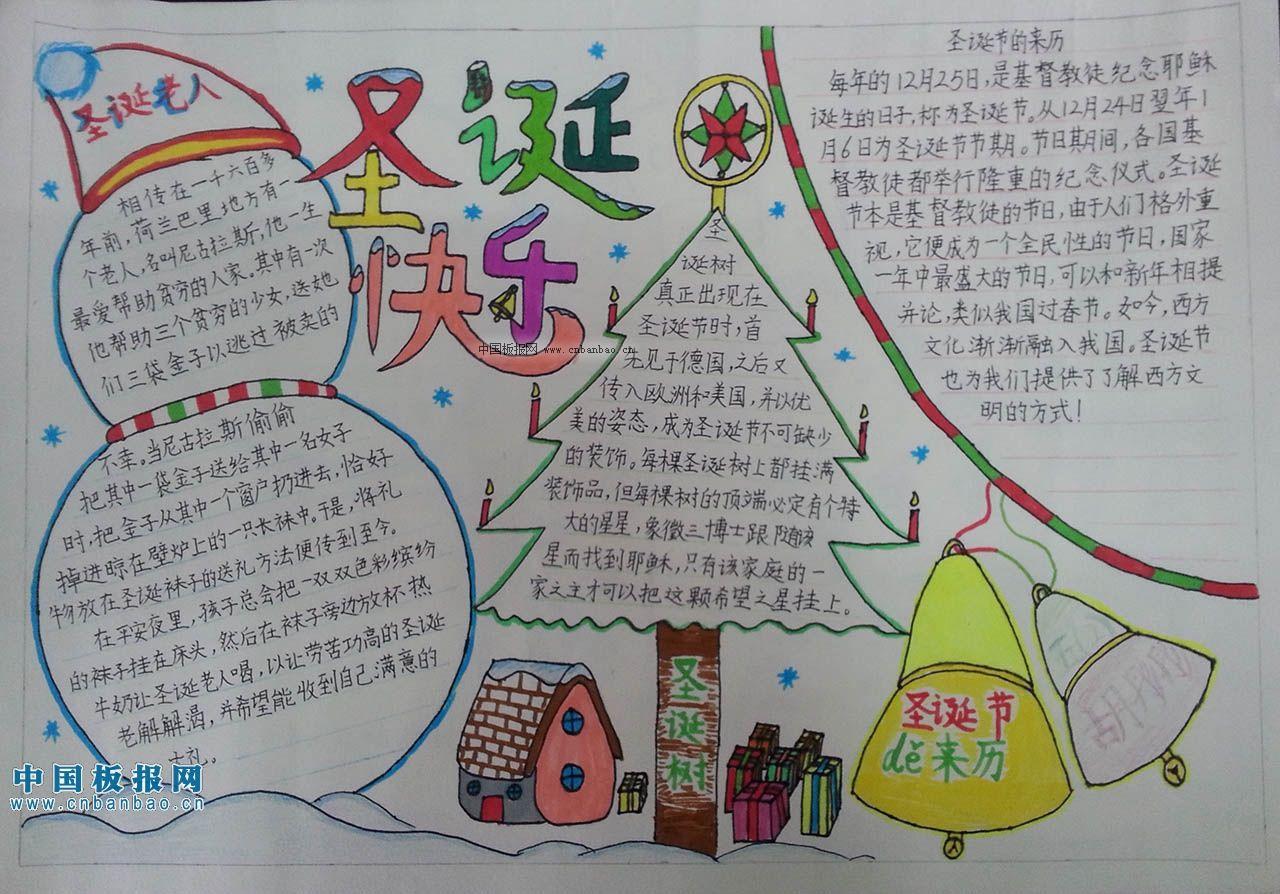 圣诞老人
相传在一千六百多
年前,荷兰巴里地方有一
个老人,名叫尼古拉斯,他一生
最爱帮助贫穷的人家。其中有一次
他帮助三个贫穷的少女,送她
们三袋金子以逃过被卖的
不幸。当尼古拉斯偷偷
把其中一袋金子送给其中一名女子
时,把金子从其中一个窗户扔进去,恰好
掉进晾在壁炉上的一只长袜中。于是,将礼
物放在圣诞袜子的送礼方法便传到至今。
在平安夜里,孩子总会把一双双色彩缤纷
的袜子挂在床头,然后在袜子旁边放杯热
牛奶让圣诞老人喝,以让劳苦功高的圣诞
老解解渴,并希望能收到自己满意的
礼。
圣诞
快乐
中国板报网 www.cnbanbao.cn
圣
诞树
真正出现在
圣诞节时,首
先见于德国,之后又
传入欧洲和美国,并以优
美的姿态,成为圣诞节不可缺少
的装饰。每棵圣诞树上都挂满
装饰品,但每棵树的顶端必定有个特
大的星星,象徵三博士跟随该
星而找到耶稣,只有该家庭的一
家之主才可以把这颗希望之星挂上。
圣诞树
圣诞节的来历
每年的12月25日,是基督教徒纪念耶稣
诞生的日子,称为圣诞节。从12月24日翌年1
月6日为圣诞节节期。节日期间,各国基
督教徒都举行隆重的纪念仪式。圣诞
节本是基督教徒的节日,由于人们格外重
视,它便成为一个全民性的节日,国家
一年中最盛大的节日,可以和新年相提
并论,类似我国过春节。如今,西方
文化渐渐融入我国。圣诞节
也为我们提供了了解西方文
明的方式!
圣诞节
dě来历
中国板报网
www.cnbanbao.cn